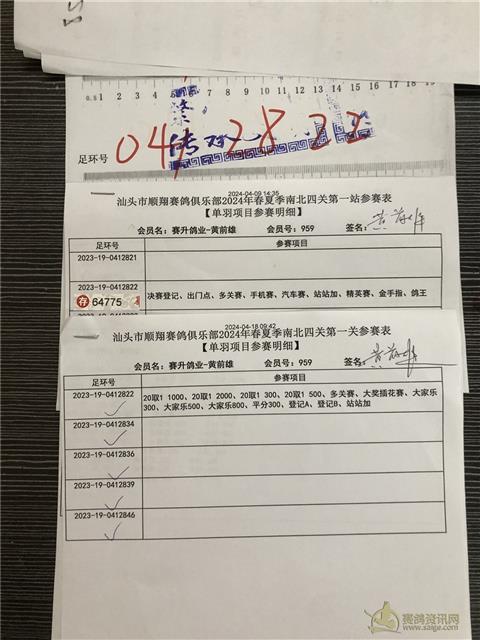 0.8 1 2 3 4 5 6 7 8 9 10 11 12 13 14 15 16 17 18 19
足环号 0412822
2024-04-09 14:35
汕头市顺翔赛鸽俱乐部2024年春夏季南北四关第一站参赛表
【单羽项目参赛明细】
会员名：赛升鸽业-黄前雄 会员号：959 签名：黄前雄
足环号 参赛项目
2023-19-0412821
2023-19-0412822
存 64775 决赛登记、出门点、多关赛、手机赛、汽车赛、站站加、精英赛、金手指、鸽王
2024-04-18 09:42
汕头市顺翔赛鸽俱乐部2024年春夏季南北四关第一关参赛表
【单羽项目参赛明细】
会员名：赛升鸽业-黄前雄 会员号：959 签名：黄前雄
足环号 参赛项目
2023-19-0412822 20取1 1000、20取1 2000、20取1 300、20取1 500、多关赛、大奖插花赛、大家乐
300、大家乐500、大家乐800、平分300、登记A、登记B、站站加
2023-19-0412834
2023-19-0412836
2023-19-0412839
2023-19-0412846
赛鸽资讯网
www.saige.com